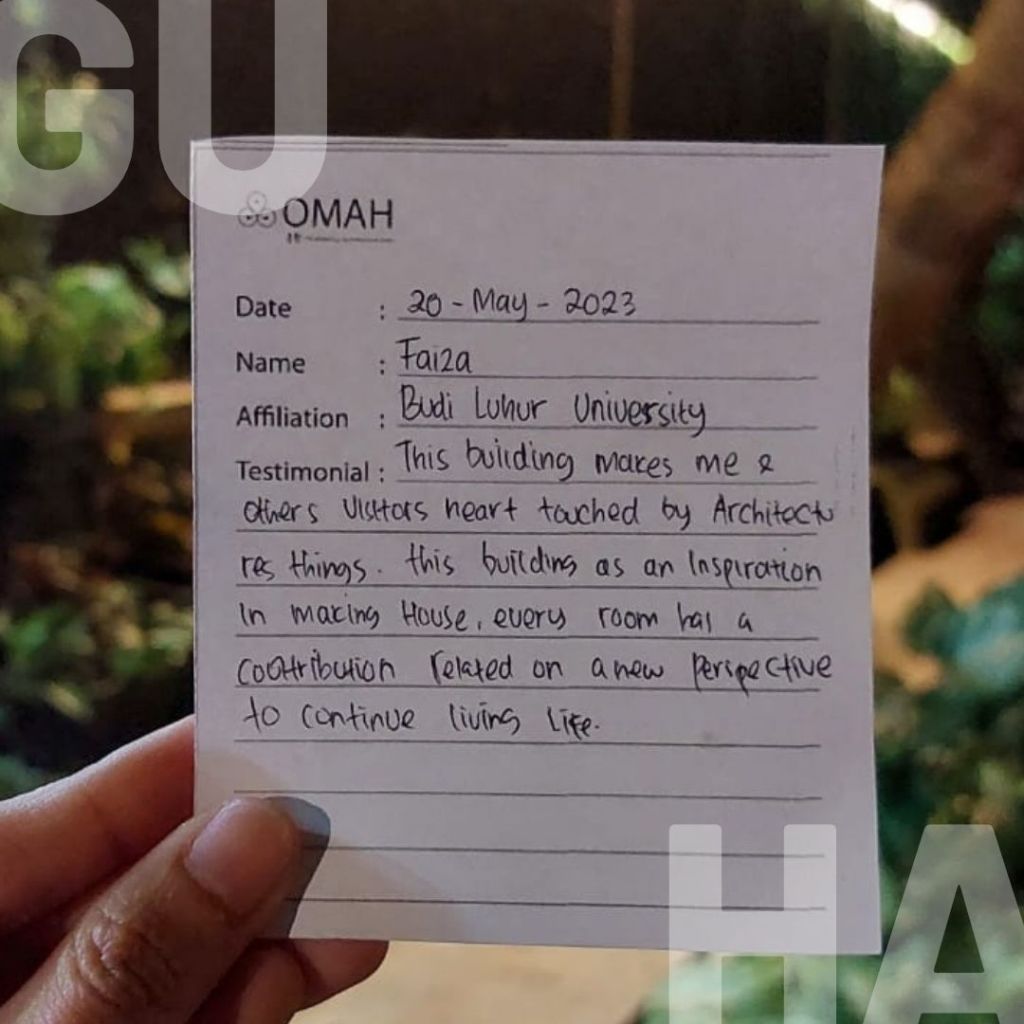 GU
OMAH
Date : 20 - May - 2023
Name : Faiza
Affiliation : Budi Luhur University
Testimonial : This building makes me &
others visitors heart touched by Architectu
res things. this building as an Inspiration
In making House, every room has a
contribution related on a new perspective
to continue living life.
HA